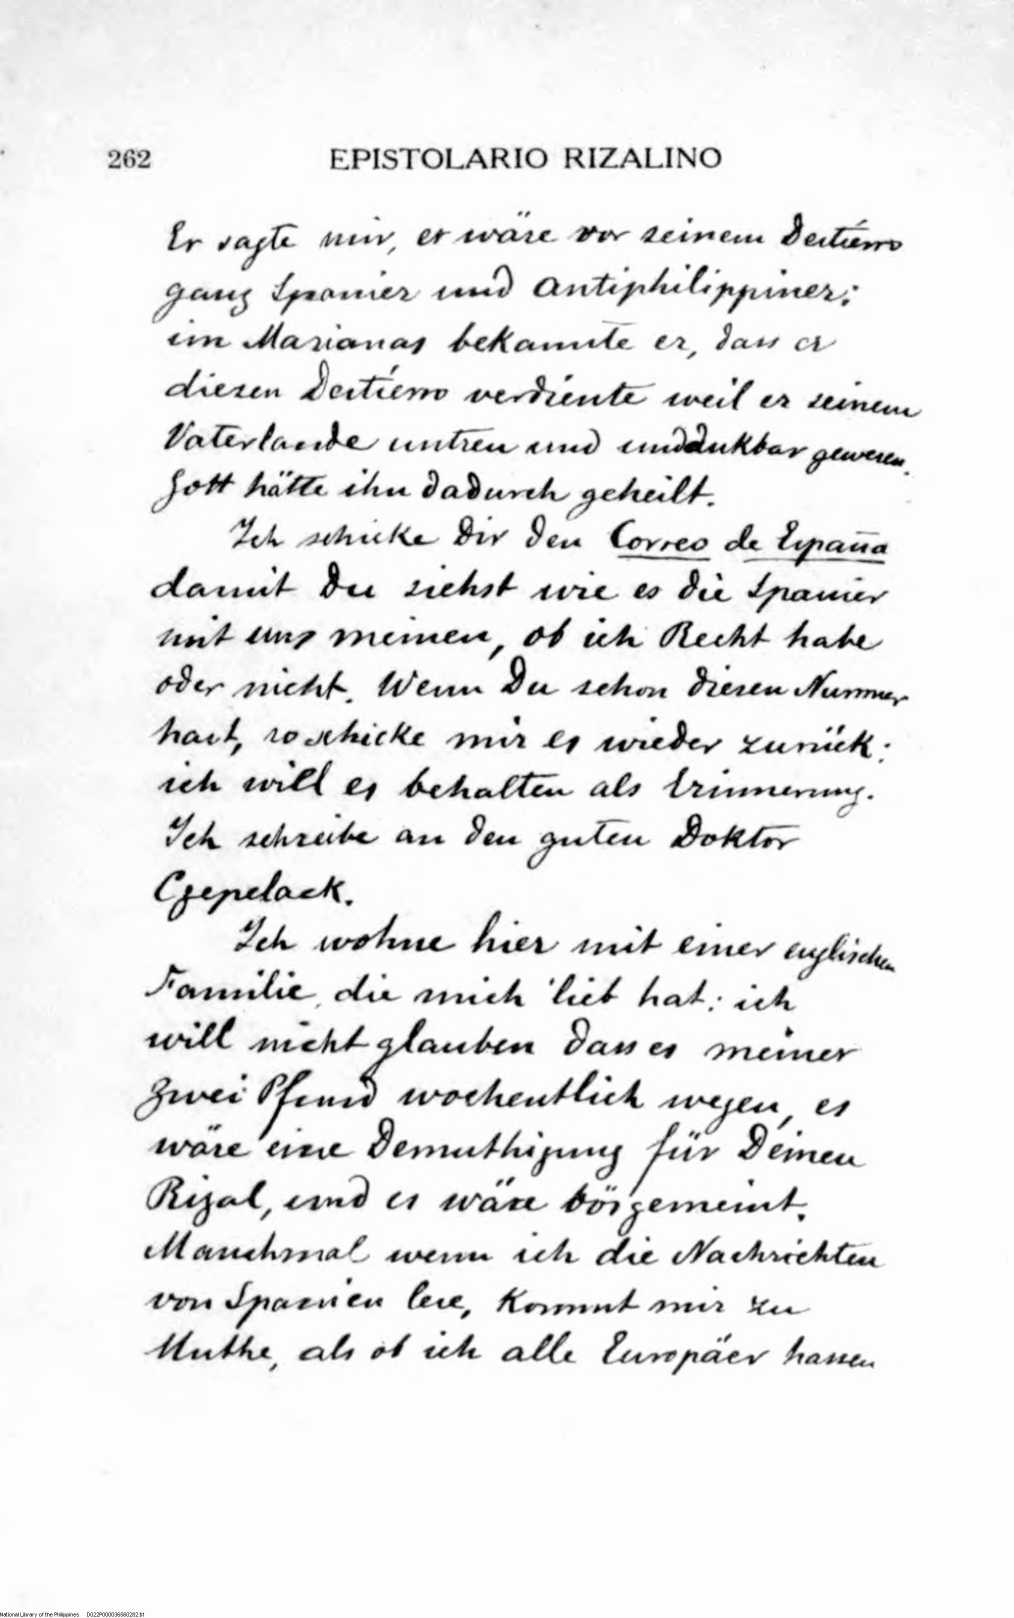 262 EPISTOLARIO RIZALINO
Er sagte mir, er wäre vor seinem Destierro
ganz Spanier und Antiphilippiner;
im Marianas bekannte er, dass er
diesen Destierro verdiente weil er seinem
Vaterlande untreu und unddankbar gewesen.
Gott hätte ihn dadurch geheilt.
Ich schicke Dir den Correo de España
damit Du siehst wie es die Spanier
mit uns meinen, ob ich Recht habe
oder nicht. Wenn Du schon diesen Nummer
hast, so schicke mir es wieder zurück:
ich will es behalten als Erinnerung.
Ich schreibe an den guten Doktor
Czepelack.
Ich wohne hier mit einer englischen
Familie, die mich lieb hat: ich
will nicht glauben dass es meiner
zwei Pfund wochentlich wegen, es
wäre eine Demuthigung für Deinen
Rizal, und es wäre bösgemeint.
Manchmal wenn ich die Nachrichten
von Spanien lese, kommt mir zu
Muthe, als ob ich alle Europäer hassen
National Library of the Philippines